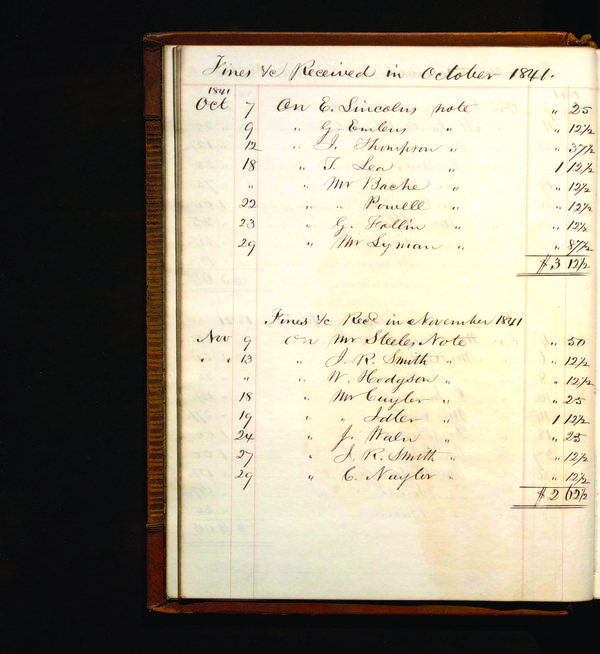 Fines &/c Received in October 1841.
1841
Oct 7 On E. Lincolns note " 25
9 " G. Emlens " " 12½
12 " J. Thompson " " 37½
18 " T. Lea " 1 12½
" " Mr Bache " " 12½
22 " " Powell " " 12½
23 " G. Follin " " 12½
29 " Mr Lyman " " 87½
$ 3 12½
Fines &/c Recd in November 1841
Nov 9 On Mr Steeles Note " 50
" " 13 " J. R. Smith " " 12½
" " W. Hodgson " " 12½
18 " Mr Cuyler " " 25
19 " " Idler " 1 12½
24 " J. Waln " " 25
27 " J. R. Smith " " 12½
29 " C. Naylor " " 12½
$ 2 62½